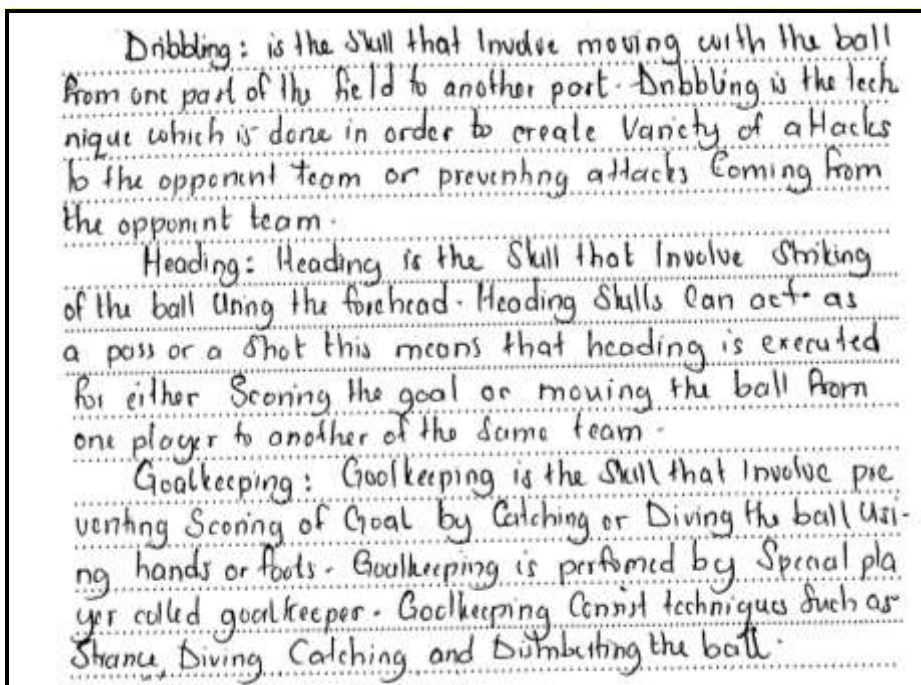 Dribbling: is the Skill that Involve moving with the ball
from one part of the field to another part. Dribbling is the tech
nique which is done in order to create Variety of attacks
to the opponent team or preventing attacks Coming from
the opponent team.
Heading: Heading is the Skill that Involve Striking
of the ball Using the forehead. Heading Skills Can act as
a pass or a Shot this means that heading is executed
for either Scoring the goal or moving the ball from
one player to another of the Same team.
Goalkeeping: Goalkeeping is the Skill that Involve pre
venting Scoring of Goal by Catching or Diving the ball Usi-
ng hands or foots. Goalkeeping is perfomed by Special pla
yer called goalkeeper. Goalkeeping Consist techniques Such as
Diving Catching and Distributing the ball.